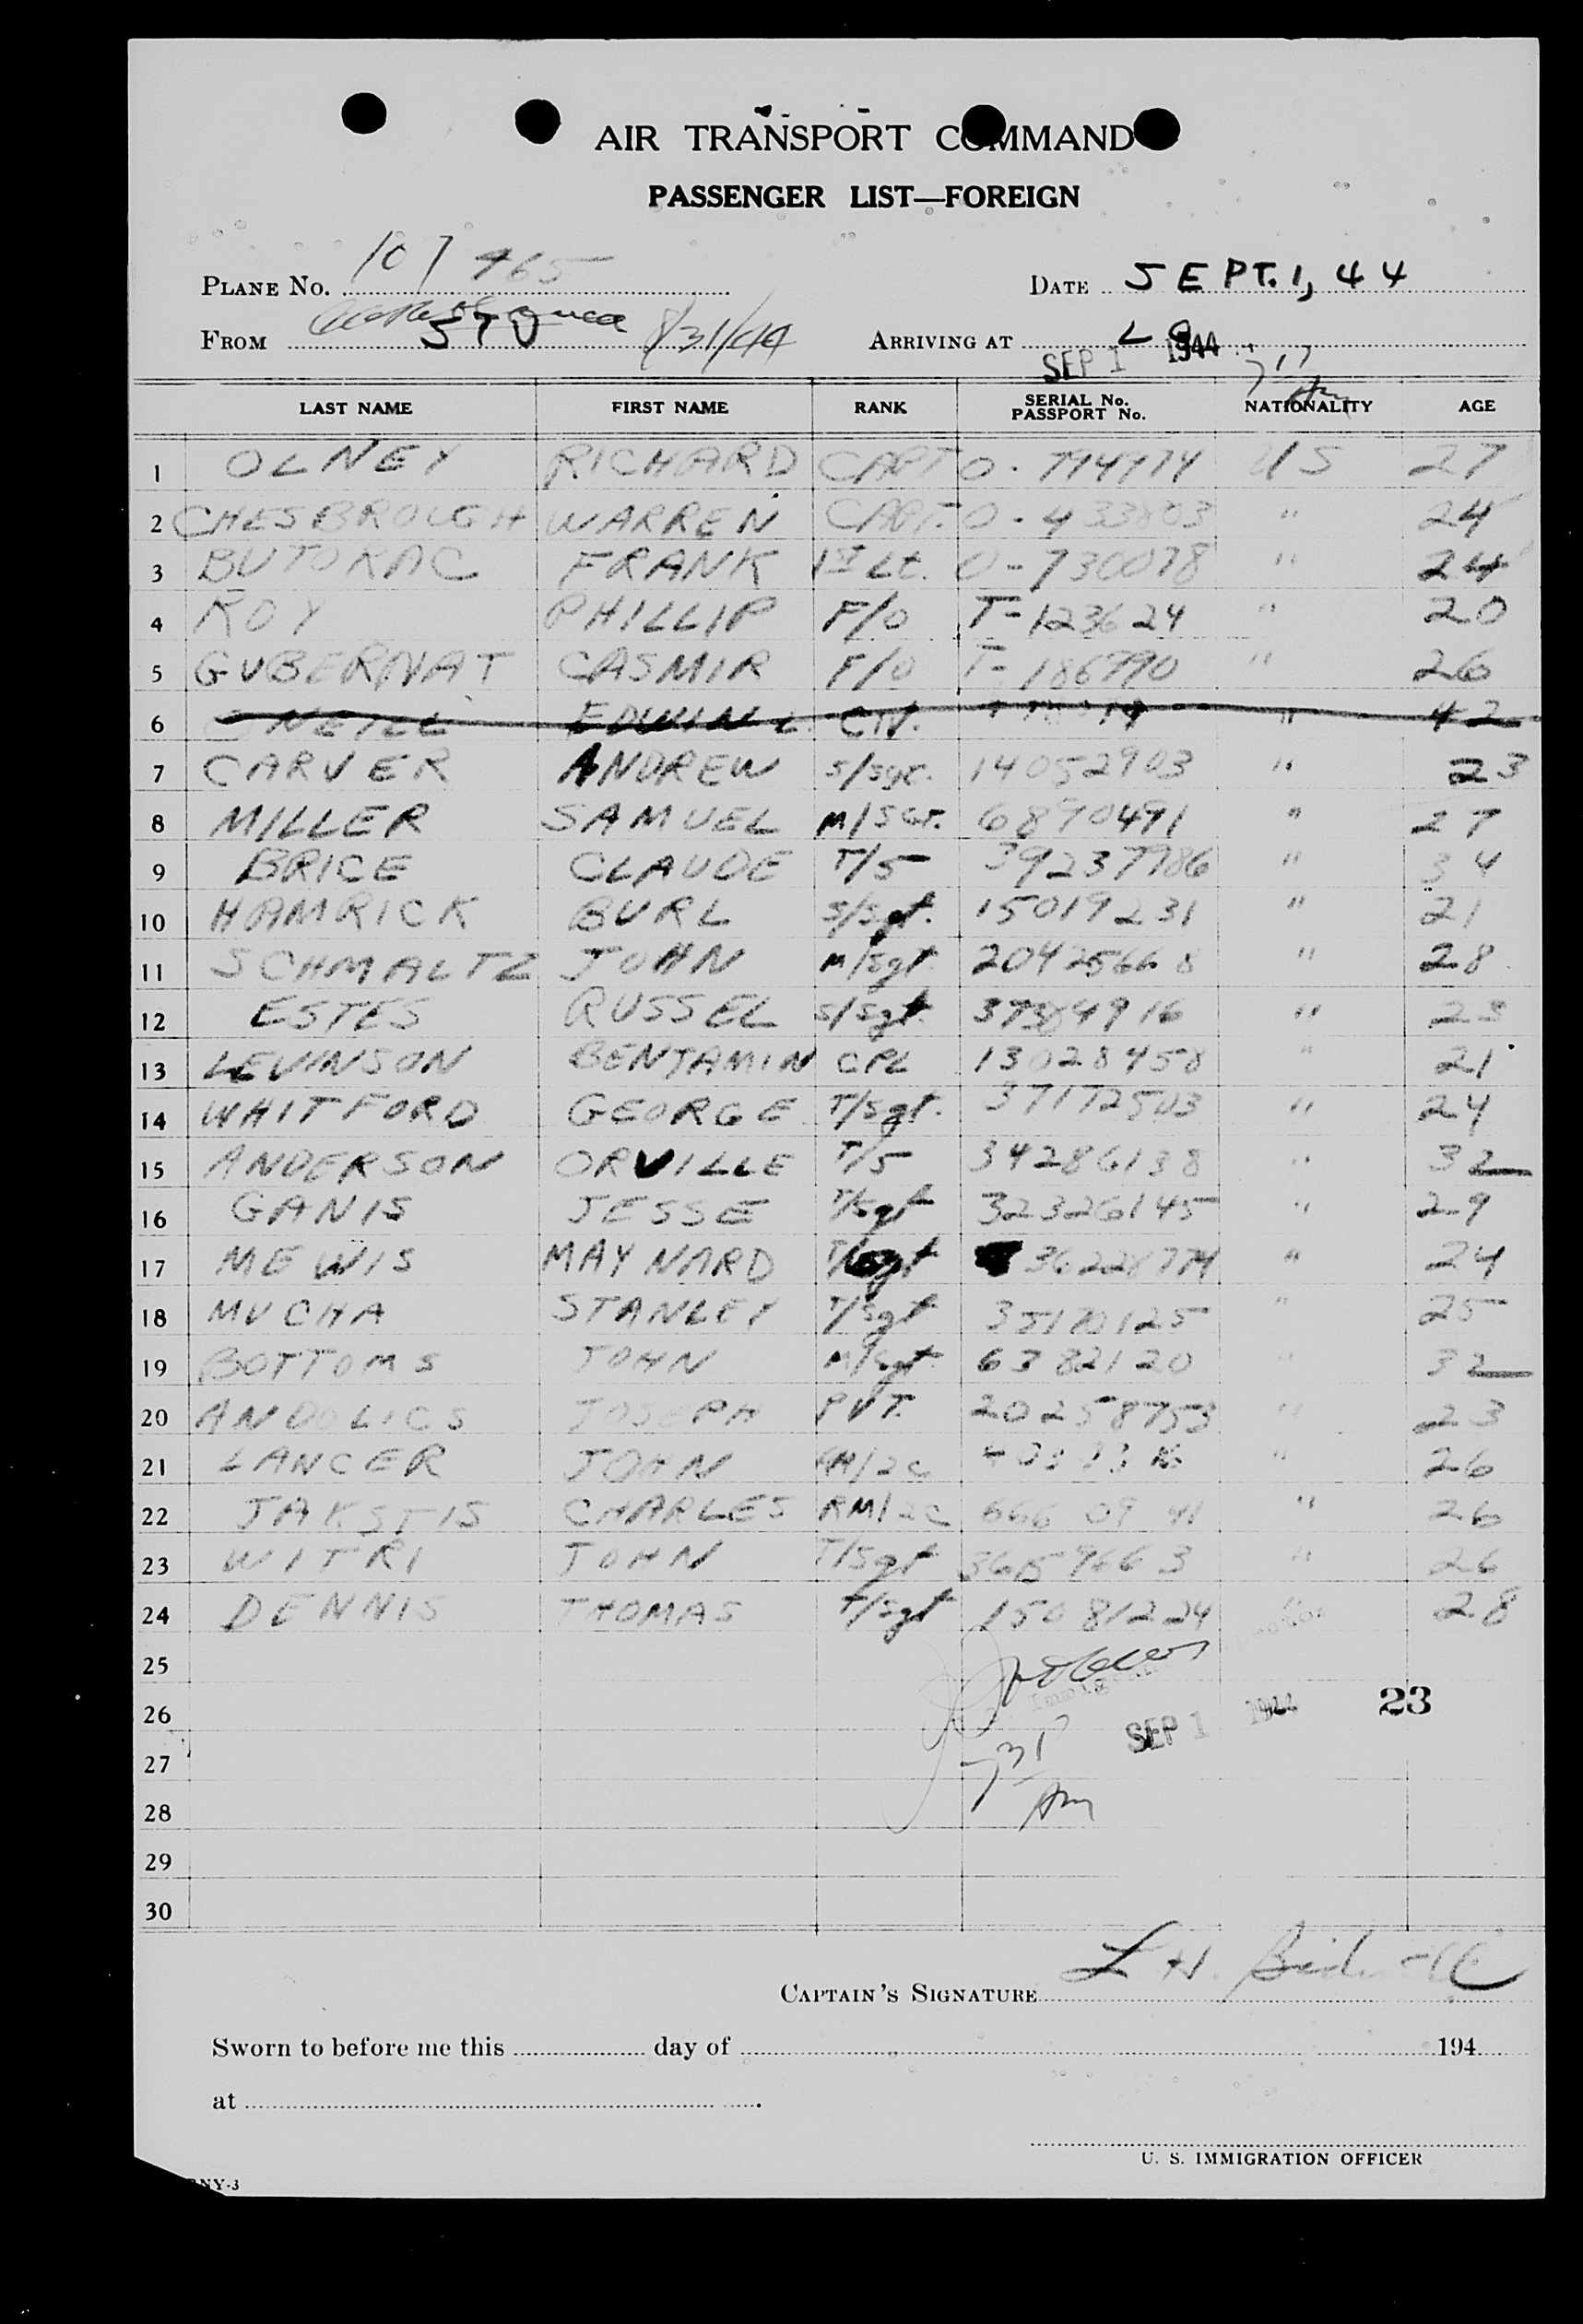 AIR TRANSPORT COMMAND
PASSENGER LIST—FOREIGN
PLANE No. 107465
DATE SEPT. 1, 44
FROM STU 8/31/44
ARRIVING AT L G
SEP 1 1944 717 Am
LAST NAME FIRST NAME RANK SERIAL No. PASSPORT No. NATIONALITY AGE
1 OLNEY RICHARD CAPT O-794974 US 27
2 CHESBROUGH WARREN CAPT. O-433803 " 24
3 BUTORAC FRANK 1ST Lt. O-730078 " 24
4 ROY PHILLIP F/O T-123624 " 20
5 GUBERNAT CASMIR F/O T-186790 " 26
6 O NEILL EDWIN L. CIV. " 42
7 CARVER ANDREW S/Sgt. 14052903 " 23
8 MILLER SAMUEL M/SGT. 6890491 " 27
9 BRICE CLAUDE T/5 39237986 " 34
10 HAMRICK BURL S/Sgt. 15019231 " 21
11 SCHMALTZ JOHN M/Sgt 20425668 " 28
12 ESTES RUSSEL S/Sgt. 37384916 " 23
13 LEVINSON BENJAMIN CPL 13028458 " 21
14 WHITFORD GEORGE T/Sgt. 37172503 " 24
15 ANDERSON ORVILLE T/5 34286138 " 32
16 GANIS JESSE T/Sgt 32326145 " 29
17 MEWIS MAYNARD T/Sgt 36228774 " 24
18 MUCHA STANLEY T/Sgt 35170125 " 25
19 BOTTOMS JOHN M/Sgt. 6382120 " 32
20 ANDOLICS JOSEPH PVT. 20258753 " 23
21 LANCER JOHN " 26
22 JAKSTIS CHARLES RM/2C 666 09 41 " 26
23 WITRI JOHN T/Sgt " 26
24 DENNIS THOMAS T/Sgt 15081224 " 28
25
26 SEP 1 1944 23
27 731
28 Am
29
30
CAPTAIN'S SIGNATURE L H.
Sworn to before me this day of 194
at
U. S. IMMIGRATION OFFICER
NY-3